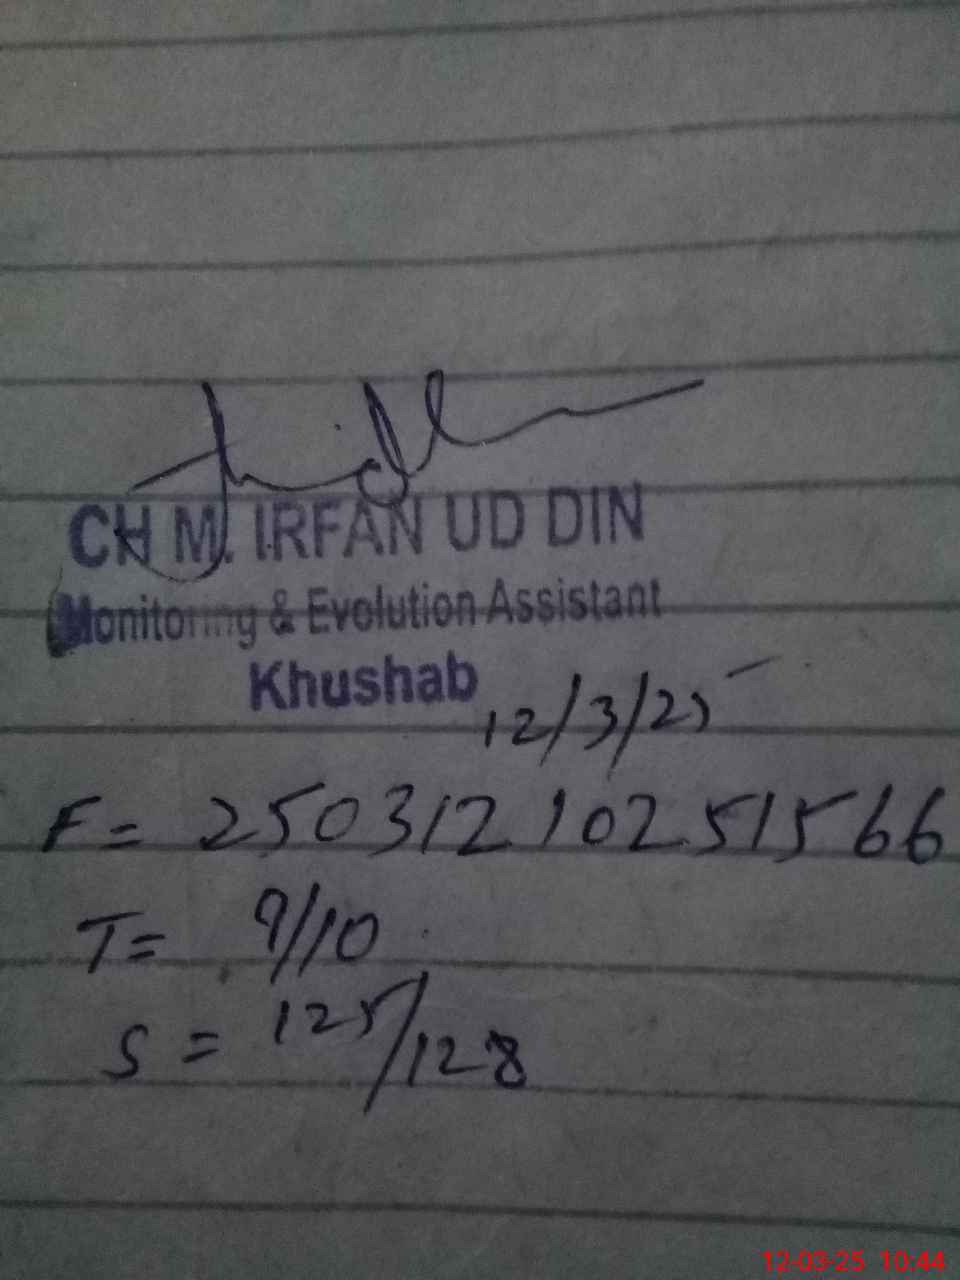 CH M. IRFAN UD DIN
Monitoring & Evolution Assistant
Khushab
12/3/25
F = 25031210251566
T = 9/10
S = 125/128
12-03-25 10:44